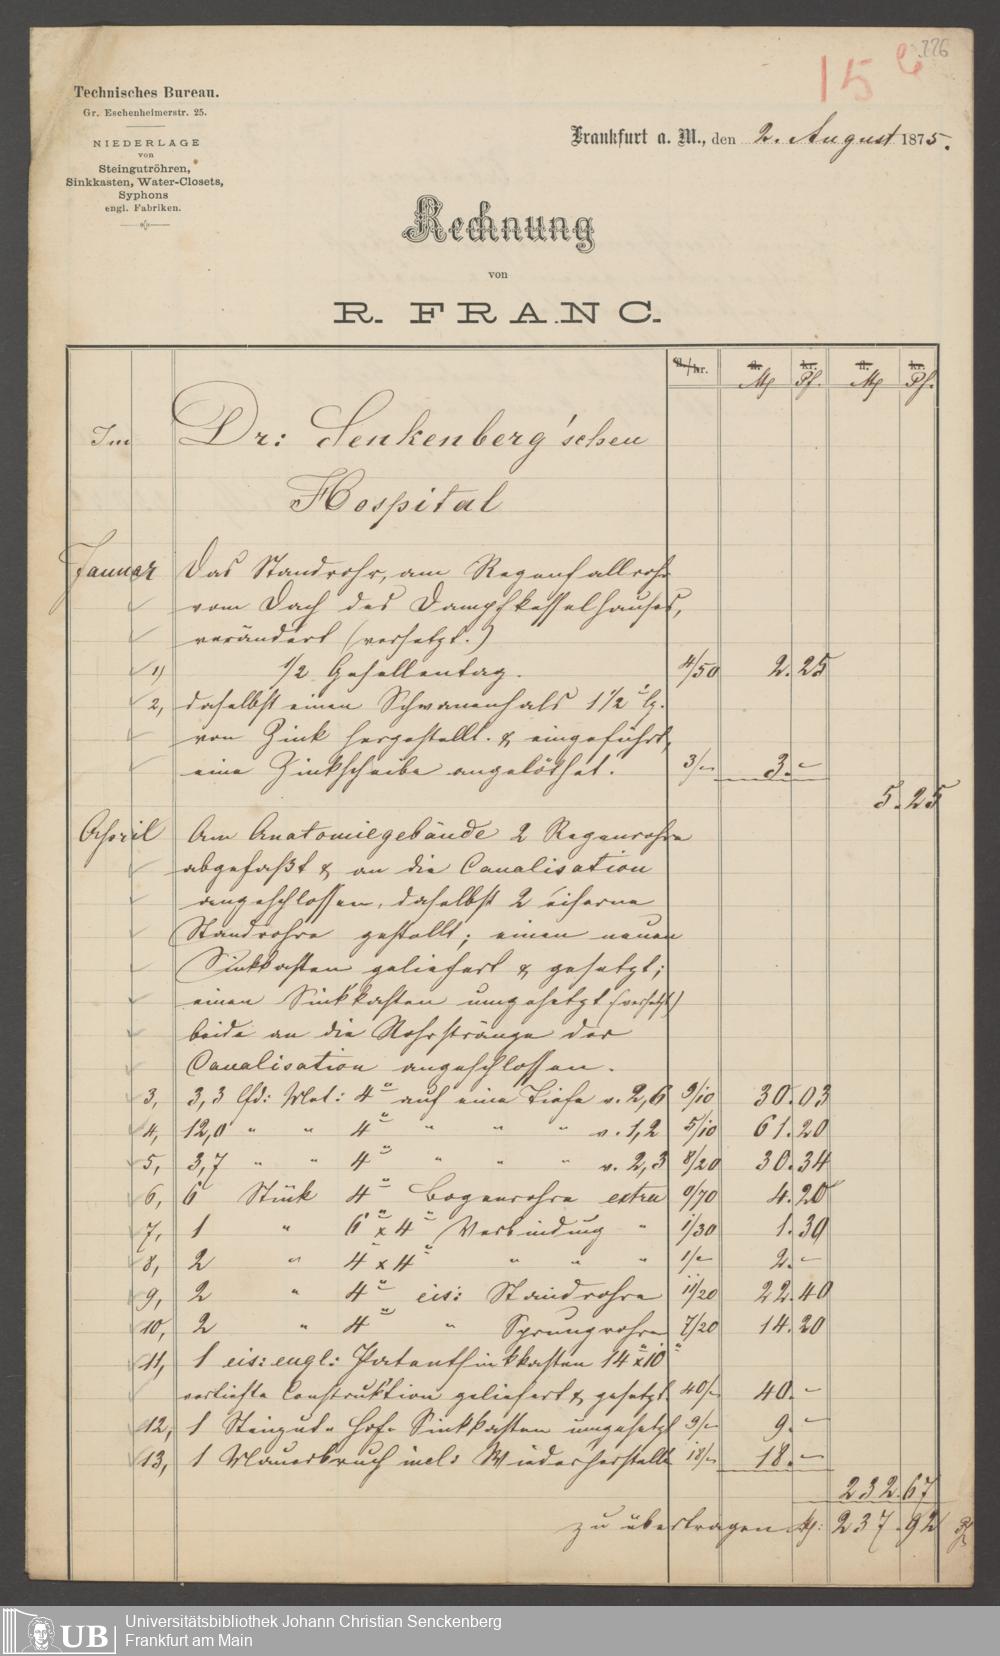 226
15 b
Technisches Bureau.
Gr. Eschenheimerstr. 25.
NIEDERLAGE
von
Steingutröhren,
Sinkkasten, Water-Closets,
Syphons
engl. Fabriken.
Frankfurt a. M., den 2. August 1875.
Rechnung
von
R. FRANC.
fl./kr. fl. kr. fl. kr.
M Pf. M Pf.
Im Dr: Senkenberg'schen
Hospital
Januar Das Standrohr, am Regenfallrohr
vom Dach des Dampfkesselhauses,
verändert (versetzt.)
1) 1/2 Gesellentag. 4/50 2.25
2, daselbst einen Schwanenhals 1 1/2" lg.
von Zink hergestellt. & eingeführt,
eine Zinkscheibe angelöthet. 3/– 3.–
5.25
April Am Anatomiegebäude 2 Regenrohre
abgefaßt & an die Canalisation
angeschlossen, daselbst 2 eiserne
Standrohre gestellt; einen neuen
Sinkkasten geliefert & gesetzt;
einen Sinkkasten umgesetzt (versetzt)
beide an die Rohrstränge der
Canalisation angeschlossen.
3, 3,3 lfd: Met: 4" auf eine Tiefe v. 2,6 9/10 30.03
4, 12,0 " " 4" " " " v. 1,2 5/10 61.20
5, 3,7 " " 4" " " " v. 2,3 8/20 30.34
6, 6 Stück 4" Bogenrohre extra 0/70 4.20
7, 1 " 6" x 4" Verbindung " 1/30 1.30
8, 2 " 4 x 4" " " " 1/– 2.–
9, 2 " 4" eis: Standrohre 11/20 22.40
10, 2 " 4" " Sprungrohre 7/20 14.20
11, 1 eis: engl: Patentsinkkasten 14" x 10"
Construktion geliefert & gesetzt 40/– 40.–
12, 1 Steingut- Hof- Sinkkasten umgesetzt 9/– 9.–
13, 1 Mauerbruch incl: Wiederherstelle 18/– 18.–
232.67
zu übertragen M: 237.92
UB Universitätsbibliothek Johann Christian Senckenberg
Frankfurt am Main